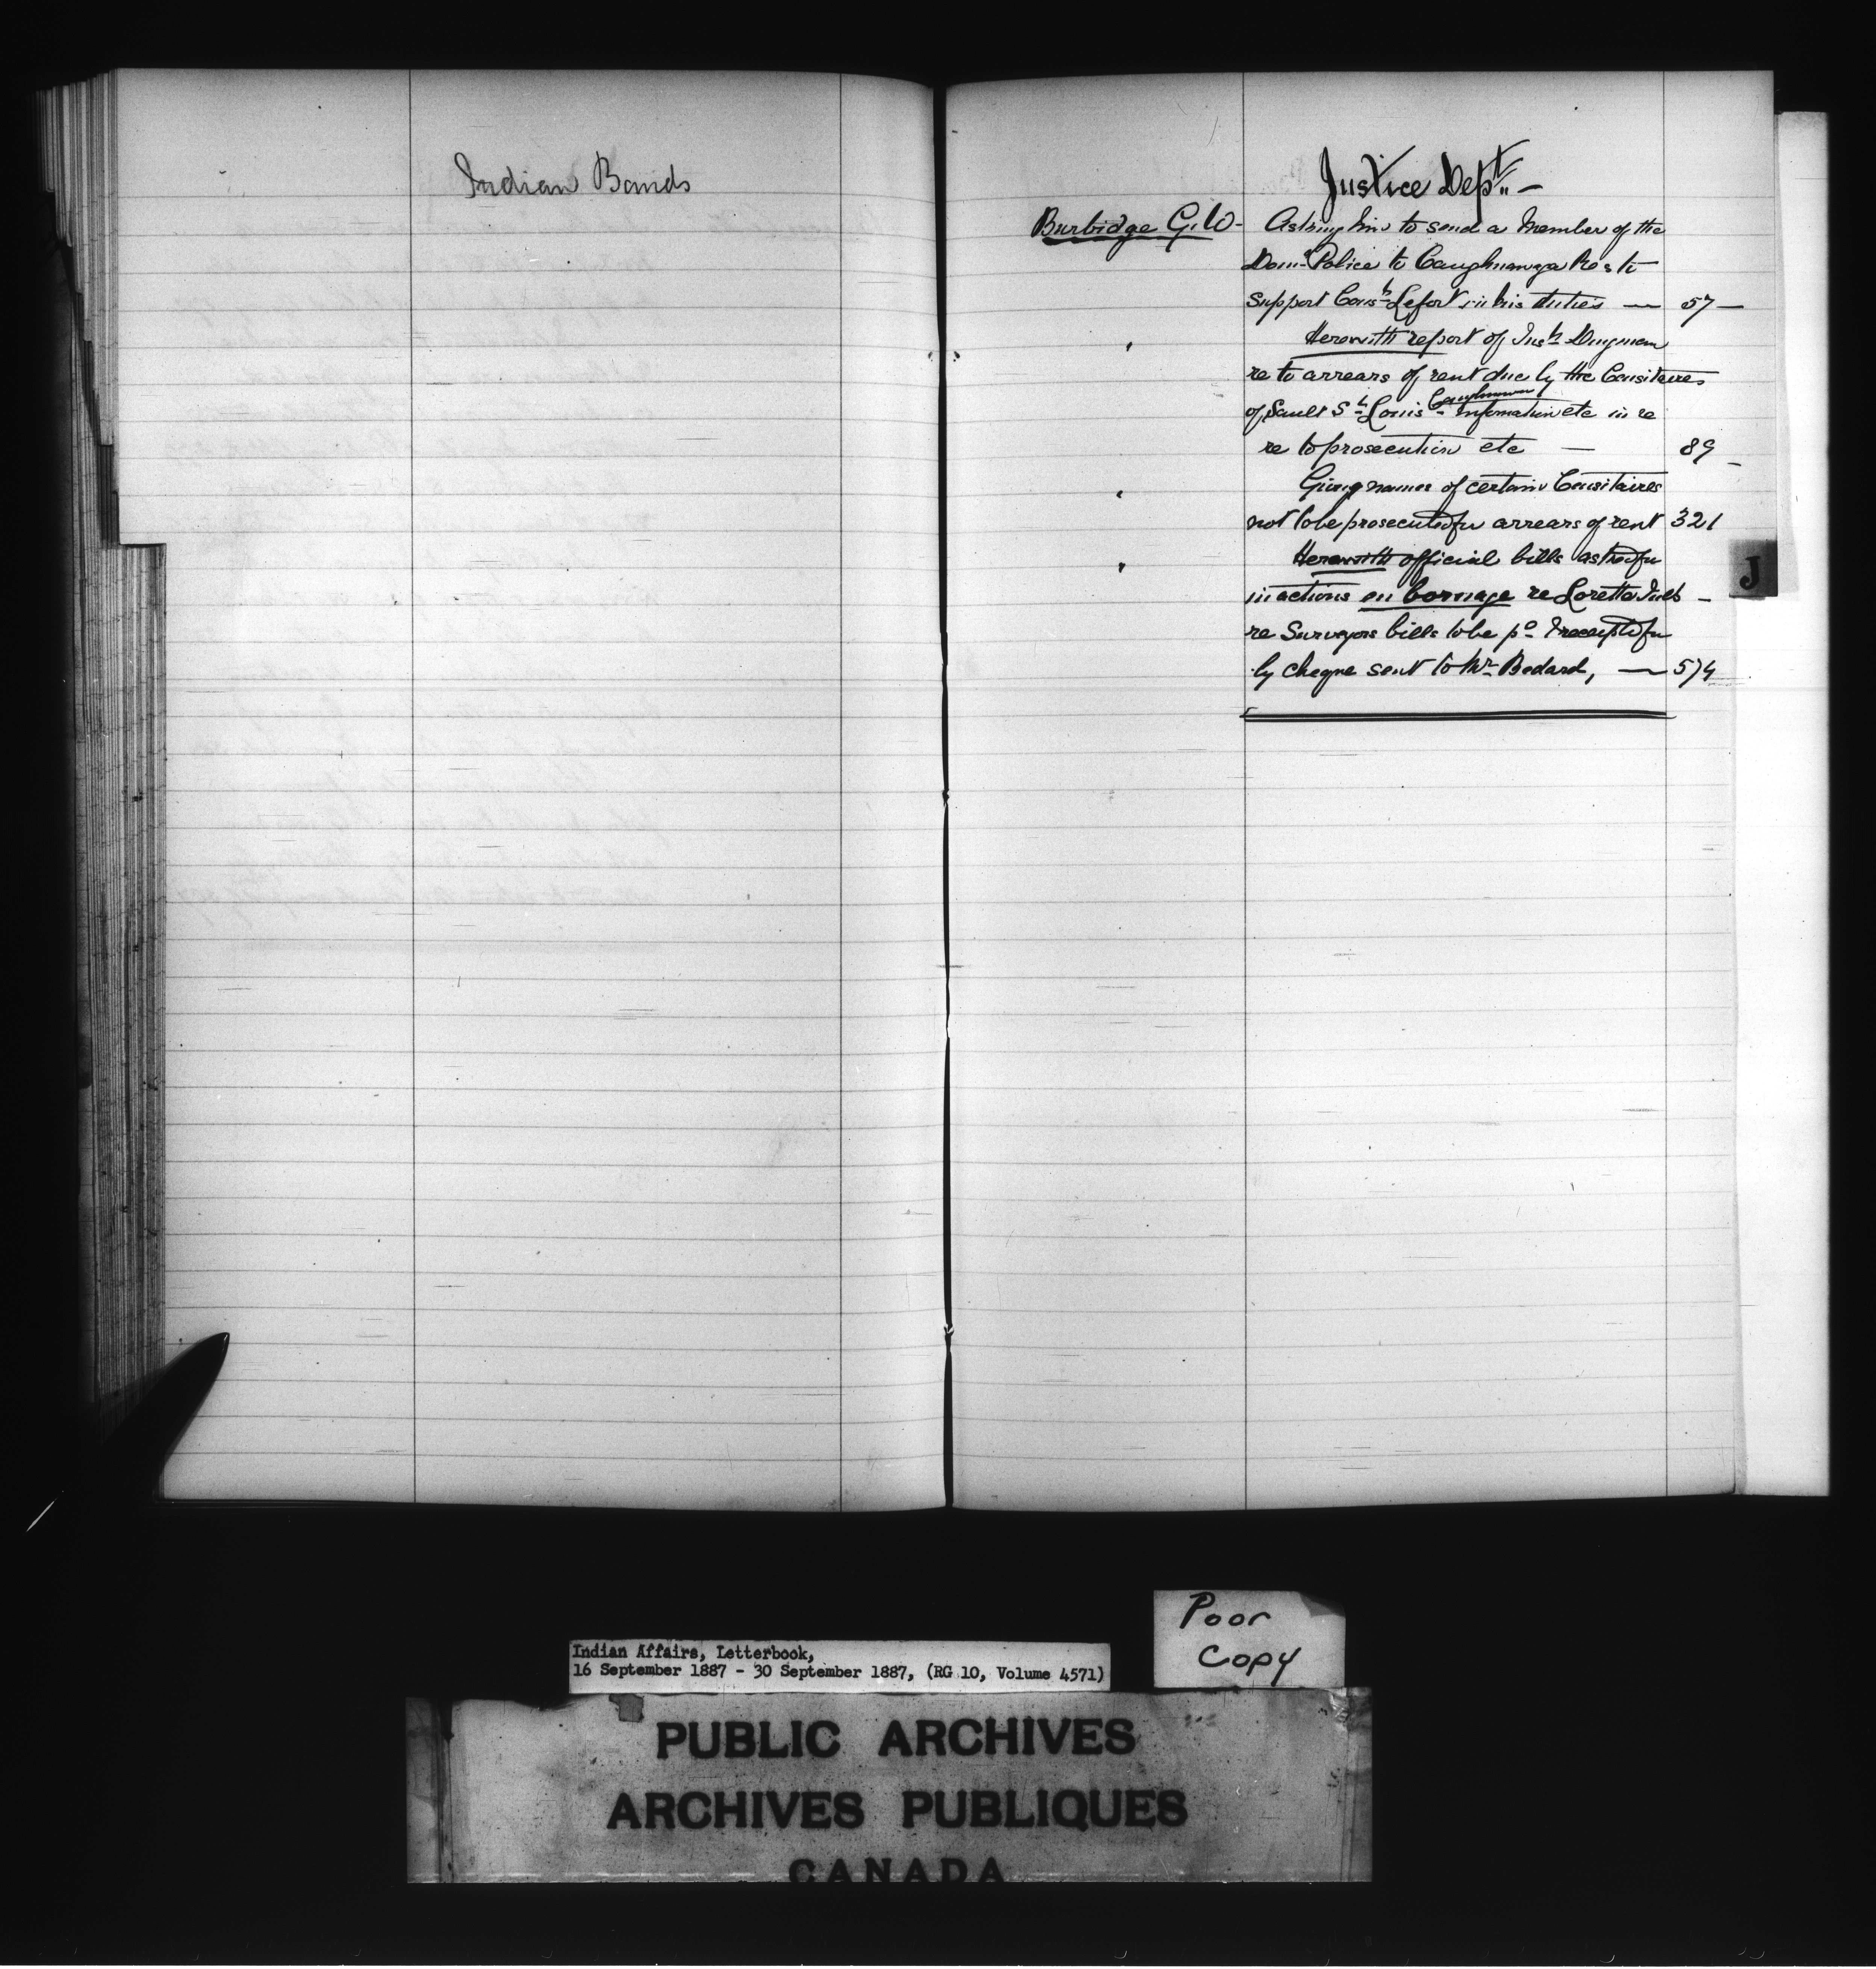 Indian Bands
Justice Dept. -
Burbidge G.W - Asking him to send a Member of the
Dom. Police to Caughnawaga Res to
support Const. Lefort in his duties — 57 —
Herewith report of Insp. Dingman
re to arrears of rent due by the Censitaires
Caughnawaga
of Sault St. Louis - information etc in re
re to prosecution etc — 89 -
Giving names of certain Censitaires
not to be prosecuted for arrears of rent 321
Herewith official bills asked for
in actions en bornage re Lorette Inds -
re Surveyors bills to be pd. & receipted for
by cheque sent to Mr. Bedard, — 574
J
Poor
Copy
Indian Affairs, Letterbook,
16 September 1887 - 30 September 1887, (RG 10, Volume 4571)
PUBLIC ARCHIVES
ARCHIVES PUBLIQUES
CANADA